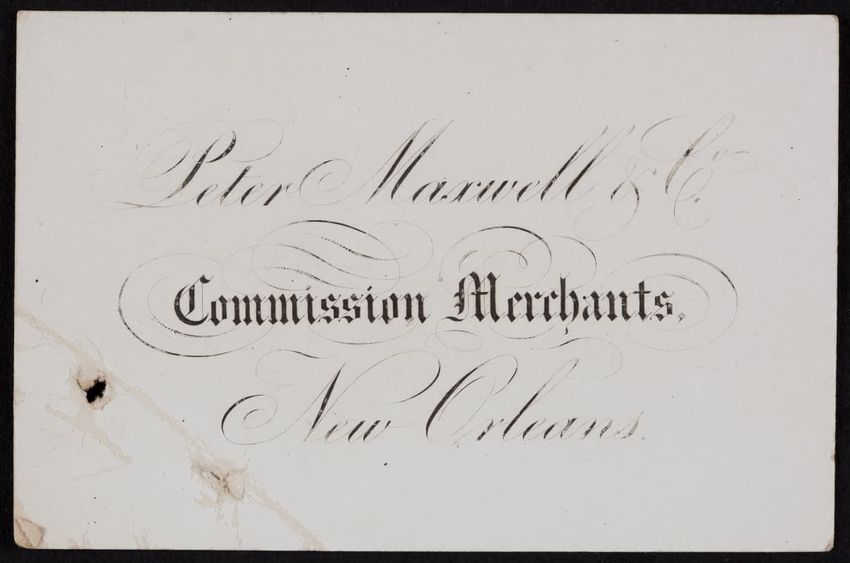 Peter Maxwell & Co.
Commission Merchants.
New Orleans.